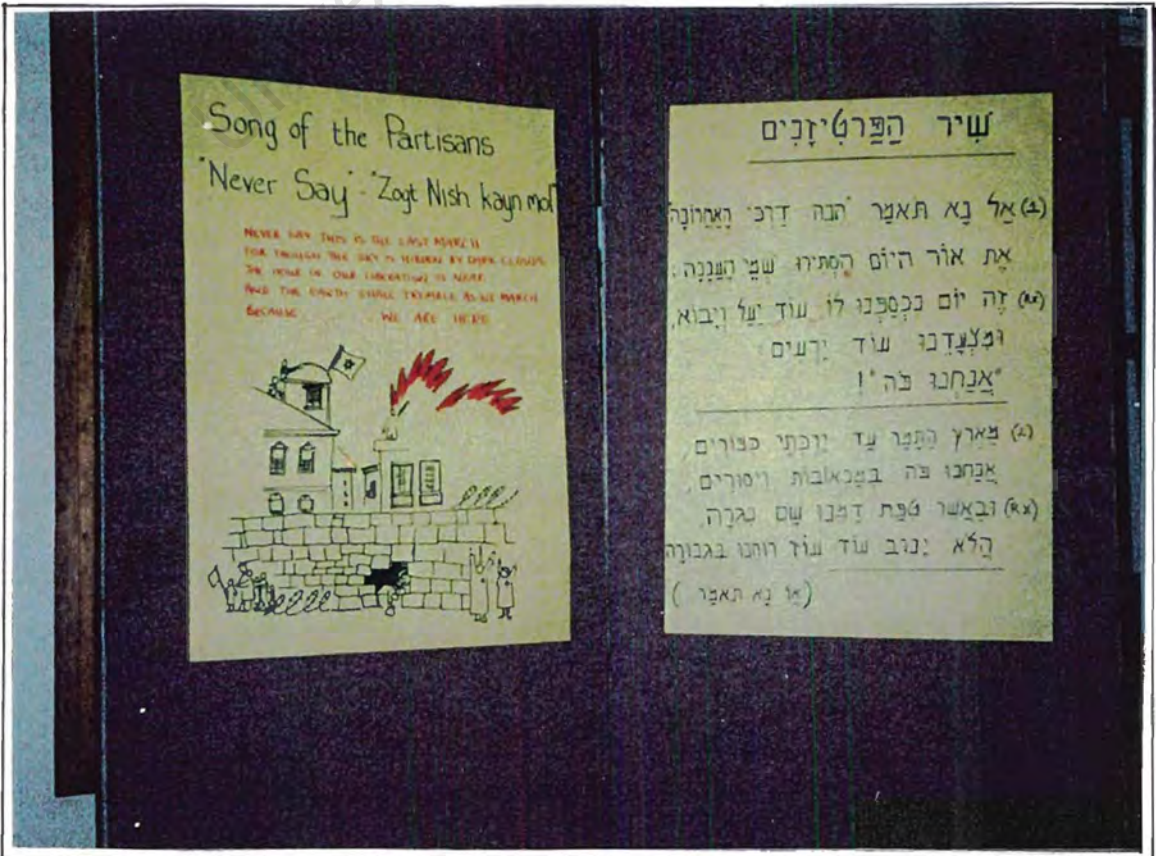 Song of the Partisans
"Never Say" - "Zogt Nish kayn mol"
NEVER SAY THIS IS THE LAST MARCH
FOR THOUGH THE SKY IS HIDDEN BY DARK CLOUDS
THE HOUR OF OUR LIBERATION IS NEAR
AND THE EARTH SHALL TREMBLE AS WE MARCH
BECAUSE WE ARE HERE
שִׁיר הַפַּרְטִיזָנִים
(1) אַל נָא תֹּאמַר "הִנֵּה דַרְכִּי הָאַחֲרוֹנָה"
אֶת אוֹר הַיּוֹם הִסְתִּירוּ שְׁמֵי הָעֲנָנָה:
(x2) זֶה יוֹם נִכְסַפְנוּ לוֹ עוֹד יַעַל וְיָבוֹא,
וּמִצְעָדֵנוּ עוֹד יַרְעִים
"אֲנַחְנוּ פֹּה"!
(2) מֵאֶרֶץ הַתָּמָר עַד יַרְכְּתֵי כְּפוֹרִים,
אֲנַחְנוּ פֹּה בְּמַכְאוֹבוֹת וְיִסּוּרִים,
(x2) וּבַאֲשֶׁר טִפַּת דָּמֵנוּ שָׁם נִגְּרָה,
הֲלֹא יָנוּב עוֹד עוֹז רוּחֵנוּ בִּגְבוּרָה
( נָא תֹּאמַר )